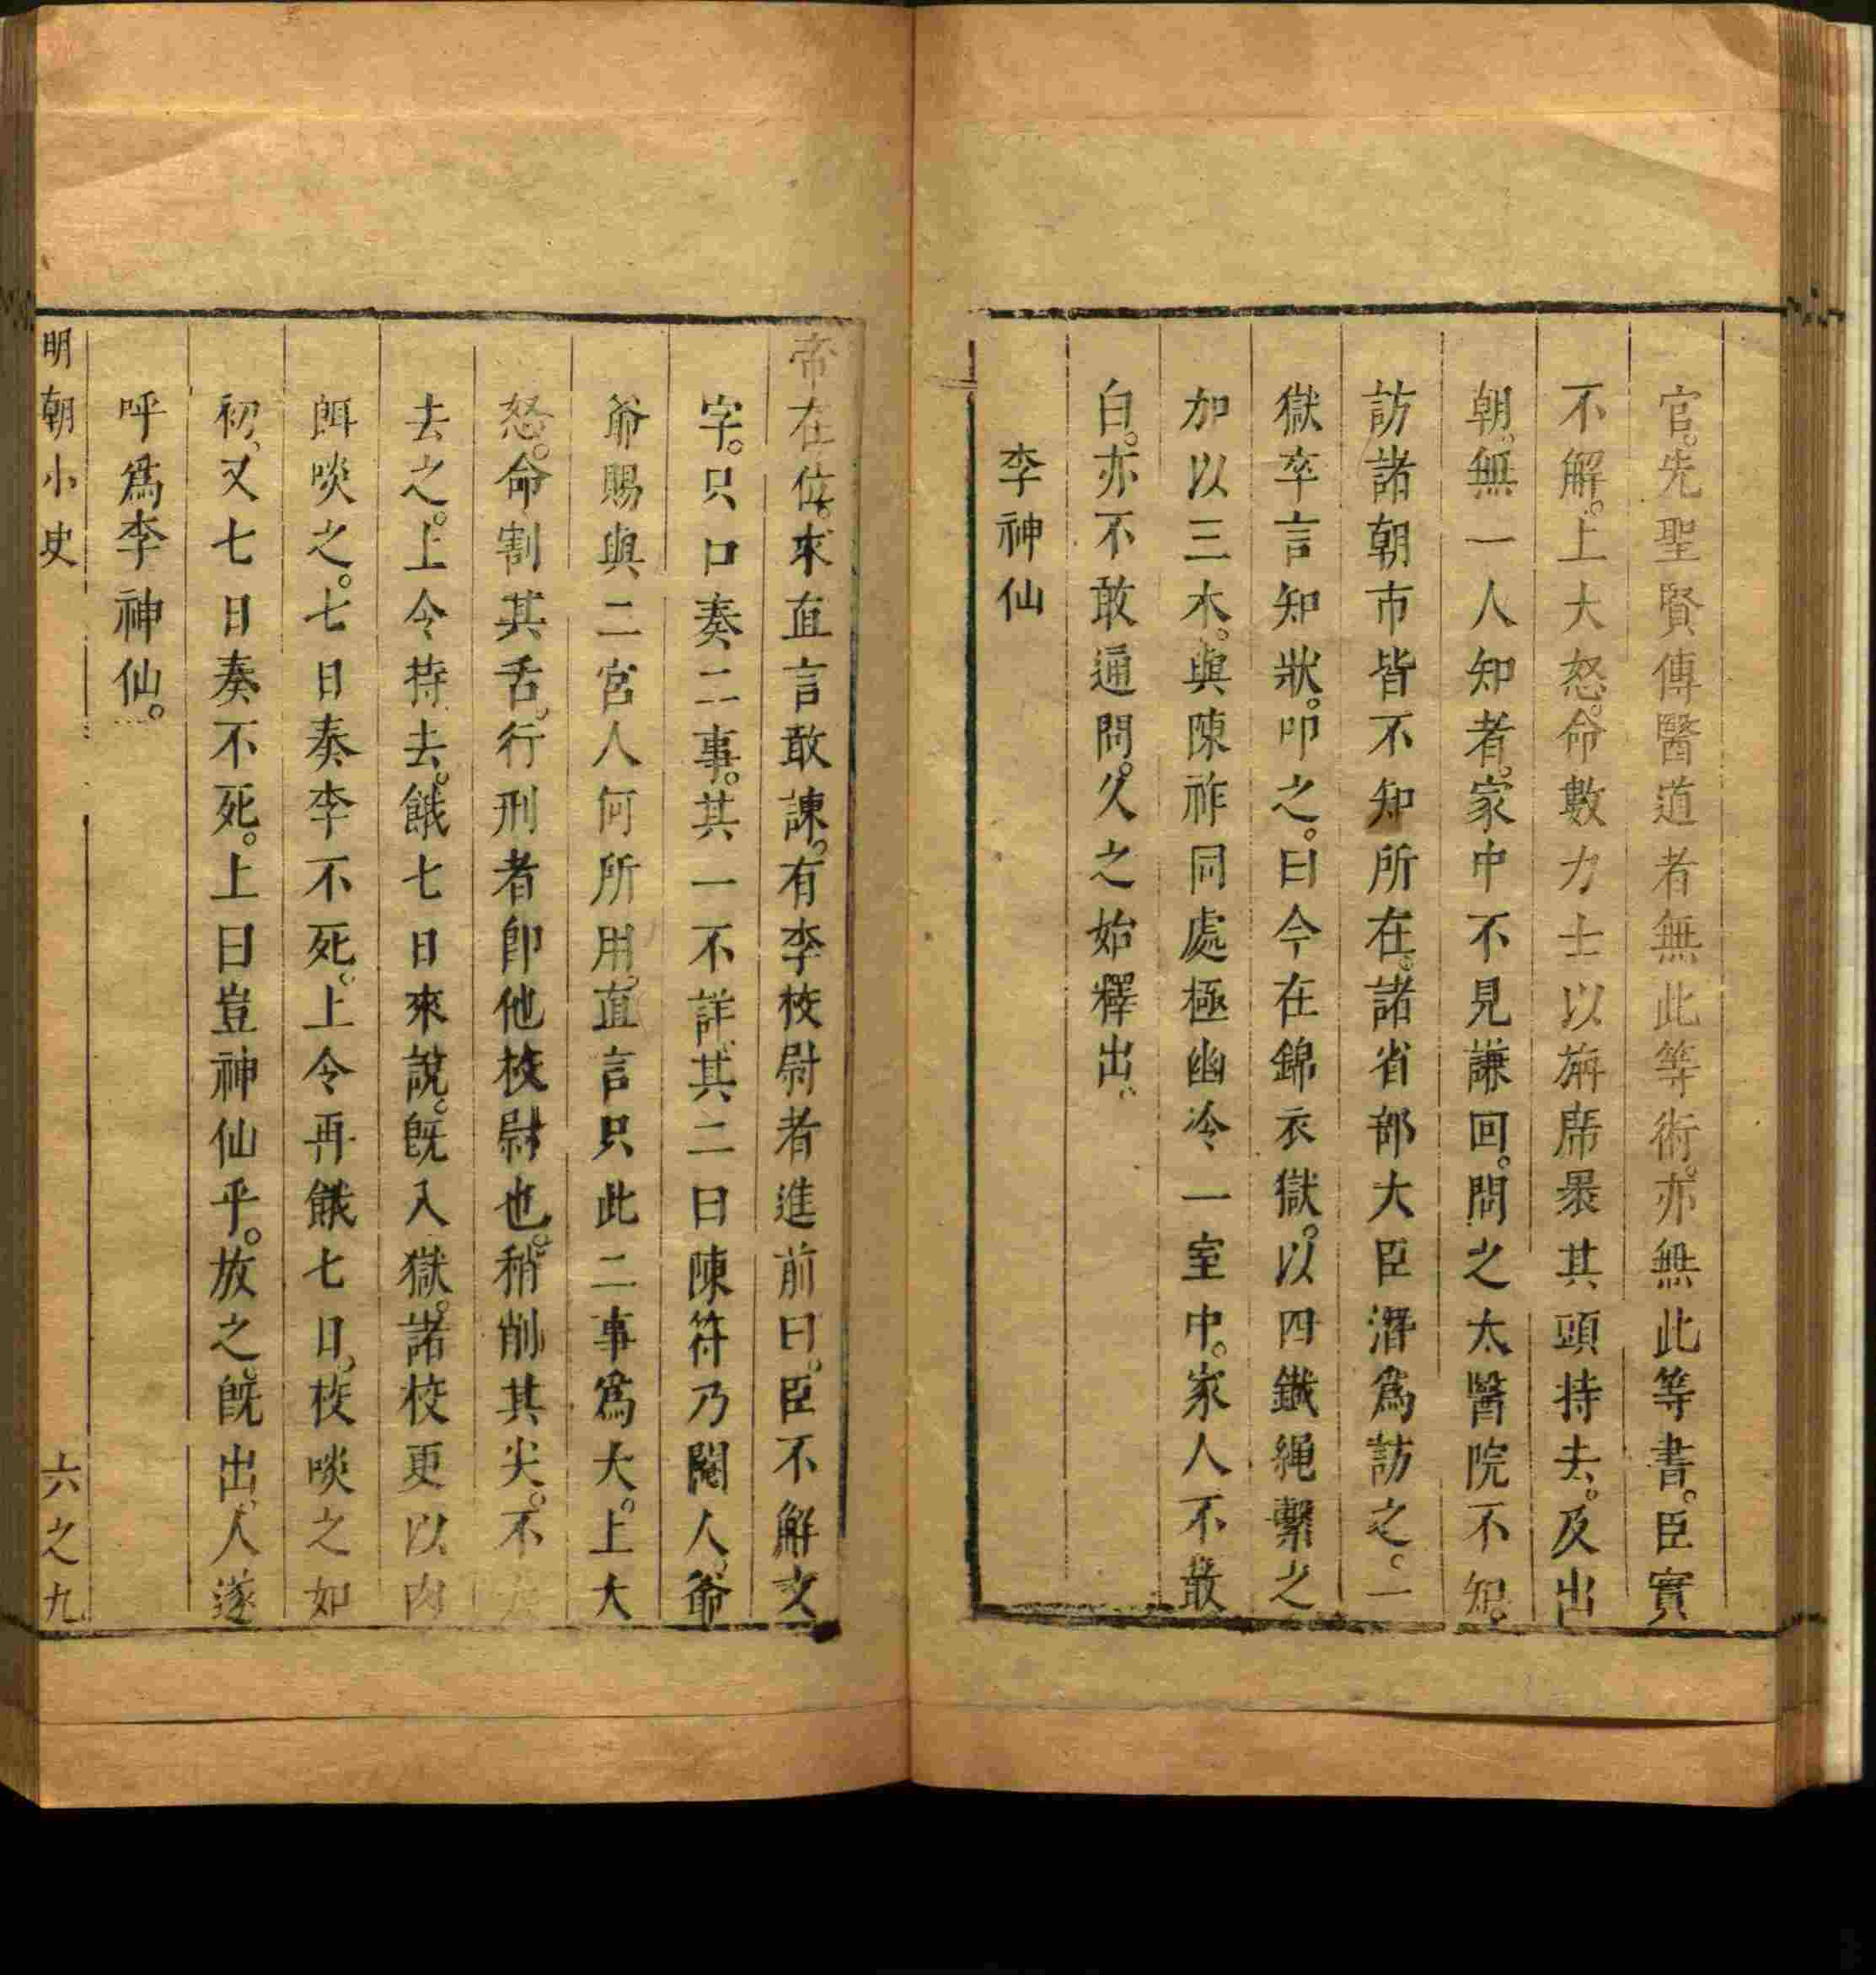 官。先聖賢傳醫道者無此等術。亦無此等書。臣實
不解。上大怒。命數力士以旃席褁其頭持去。及出
朝。無一人知者。家中不見謙回。問之太醫院不知。
訪諸朝市皆不知所在。諸省部大臣潛爲訪之。一
獄卒言知狀。叩之。曰今在錦衣獄。以四鐵繩繫之
加以三木。與陳祚同處極幽冷一室中。家人不敢
白。亦不敢通問。久之始釋出。
李神仙
帝在位。求直言敢諫。有李校尉者進前曰。臣不解文
字。只口奏二事。其一不詳。其二曰陳符乃閹人。爺
爺賜與二宮人何所用。直言只此二事爲大。上大
怒。命割其舌。行刑者卽他校尉也。稍削其尖。不
去之。上令持去。餓七日來說。旣入獄。諸校更以肉
餌啖之。七日奏李不死。上令再餓七日。校啖之如
初。又七日奏不死。上曰豈神仙乎。放之。旣出。人遂
呼爲李神仙。
明朝小史 六之九